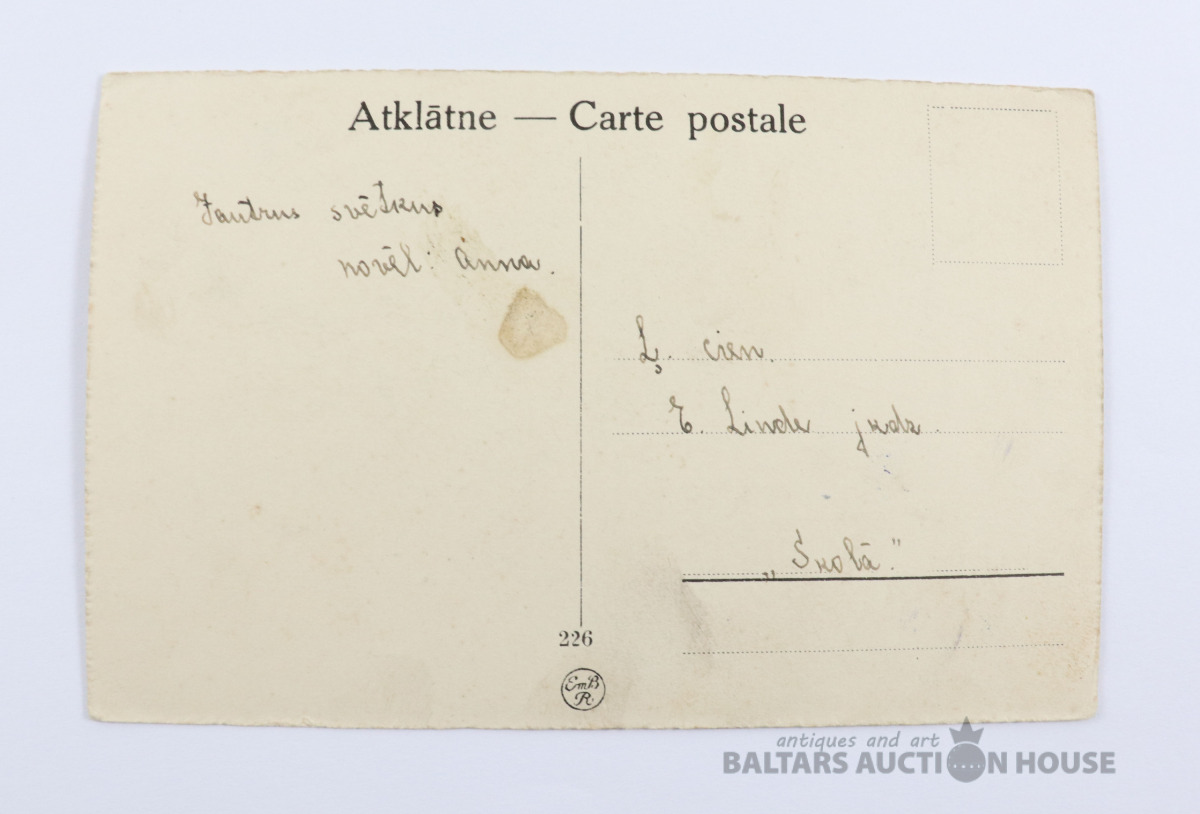 Atklātne — Carte postale
Jautrus svētkus
novēl: Anna.
Ļ. cien.
E. Linde jkdz.
„Skolā."
226
EmB
R
antiques and art
BALTARS AUCTION HOUSE